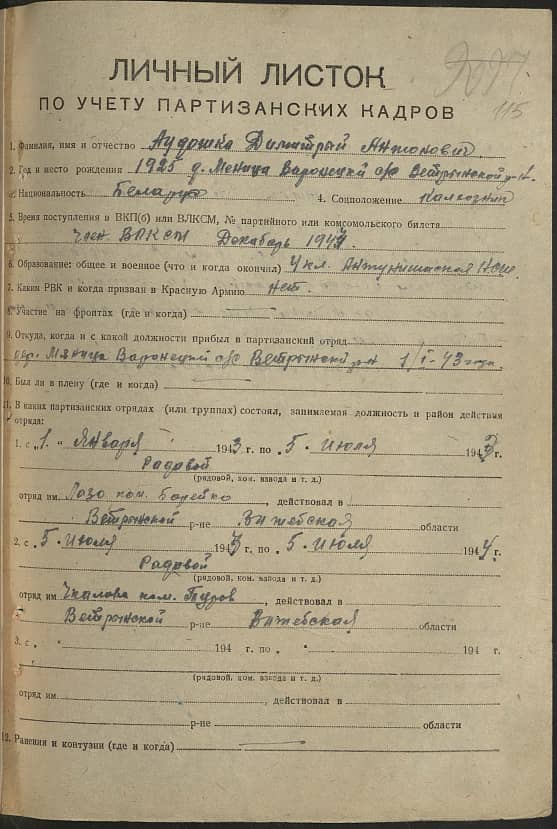 115
ЛИЧНЫЙ ЛИСТОК
ПО УЧЕТУ ПАРТИЗАНСКИХ КАДРОВ
1. Фамилия, имя и отчество Аудошка Димитрый Антонович
2. Год и место рождения 1925 д. Меница Варонецкий с/с Ветрынской р-н.
3. Национальность Беларус 4. Соцположение Калхозник
5. Время поступления в ВКП(б) или ВЛКСМ, № партийного или комсомольского билета
Член ВЛКСМ Декабрь 1944
6. Образование: общее и военное (что и когда окончил) 4 кл. НСШ.
7. Каким РВК и когда призван в Красную Армию Нет.
8. Участие на фронтах (где и когда)
9. Откуда, когда и с какой должности прибыл в партизанский отряд
дер. Мяница Варонецкий с/с Ветрынский р-н 1/I-43 года.
10. Был ли в плену (где и когда)
11. В каких партизанских отрядах (или группах) состоял, занимаемая должность и район действия
отряда:
1. с „1. “ Января 1943 г. по „5. Июля 1943 г.
Радавой
(рядовой, ком. взвода и т. д.)
отряд им. Лазо ком. Барейко, действовал в
Ветрынской р-не Витебская области
2. с „5. Июля 1943 г. по „5. Июля 1944 г.
Радавой
(рядовой, ком. взвода и т. д.)
отряд им Чкалова ком. Туров, действовал в
Ветрынской р-не Витебская области
3. с „ “ 194 г. по „ “ 194 г.
(рядовой, ком. взвода и т. д.)
отряд им., действовал в
р-не области
12. Ранения и контузии (где и когда)